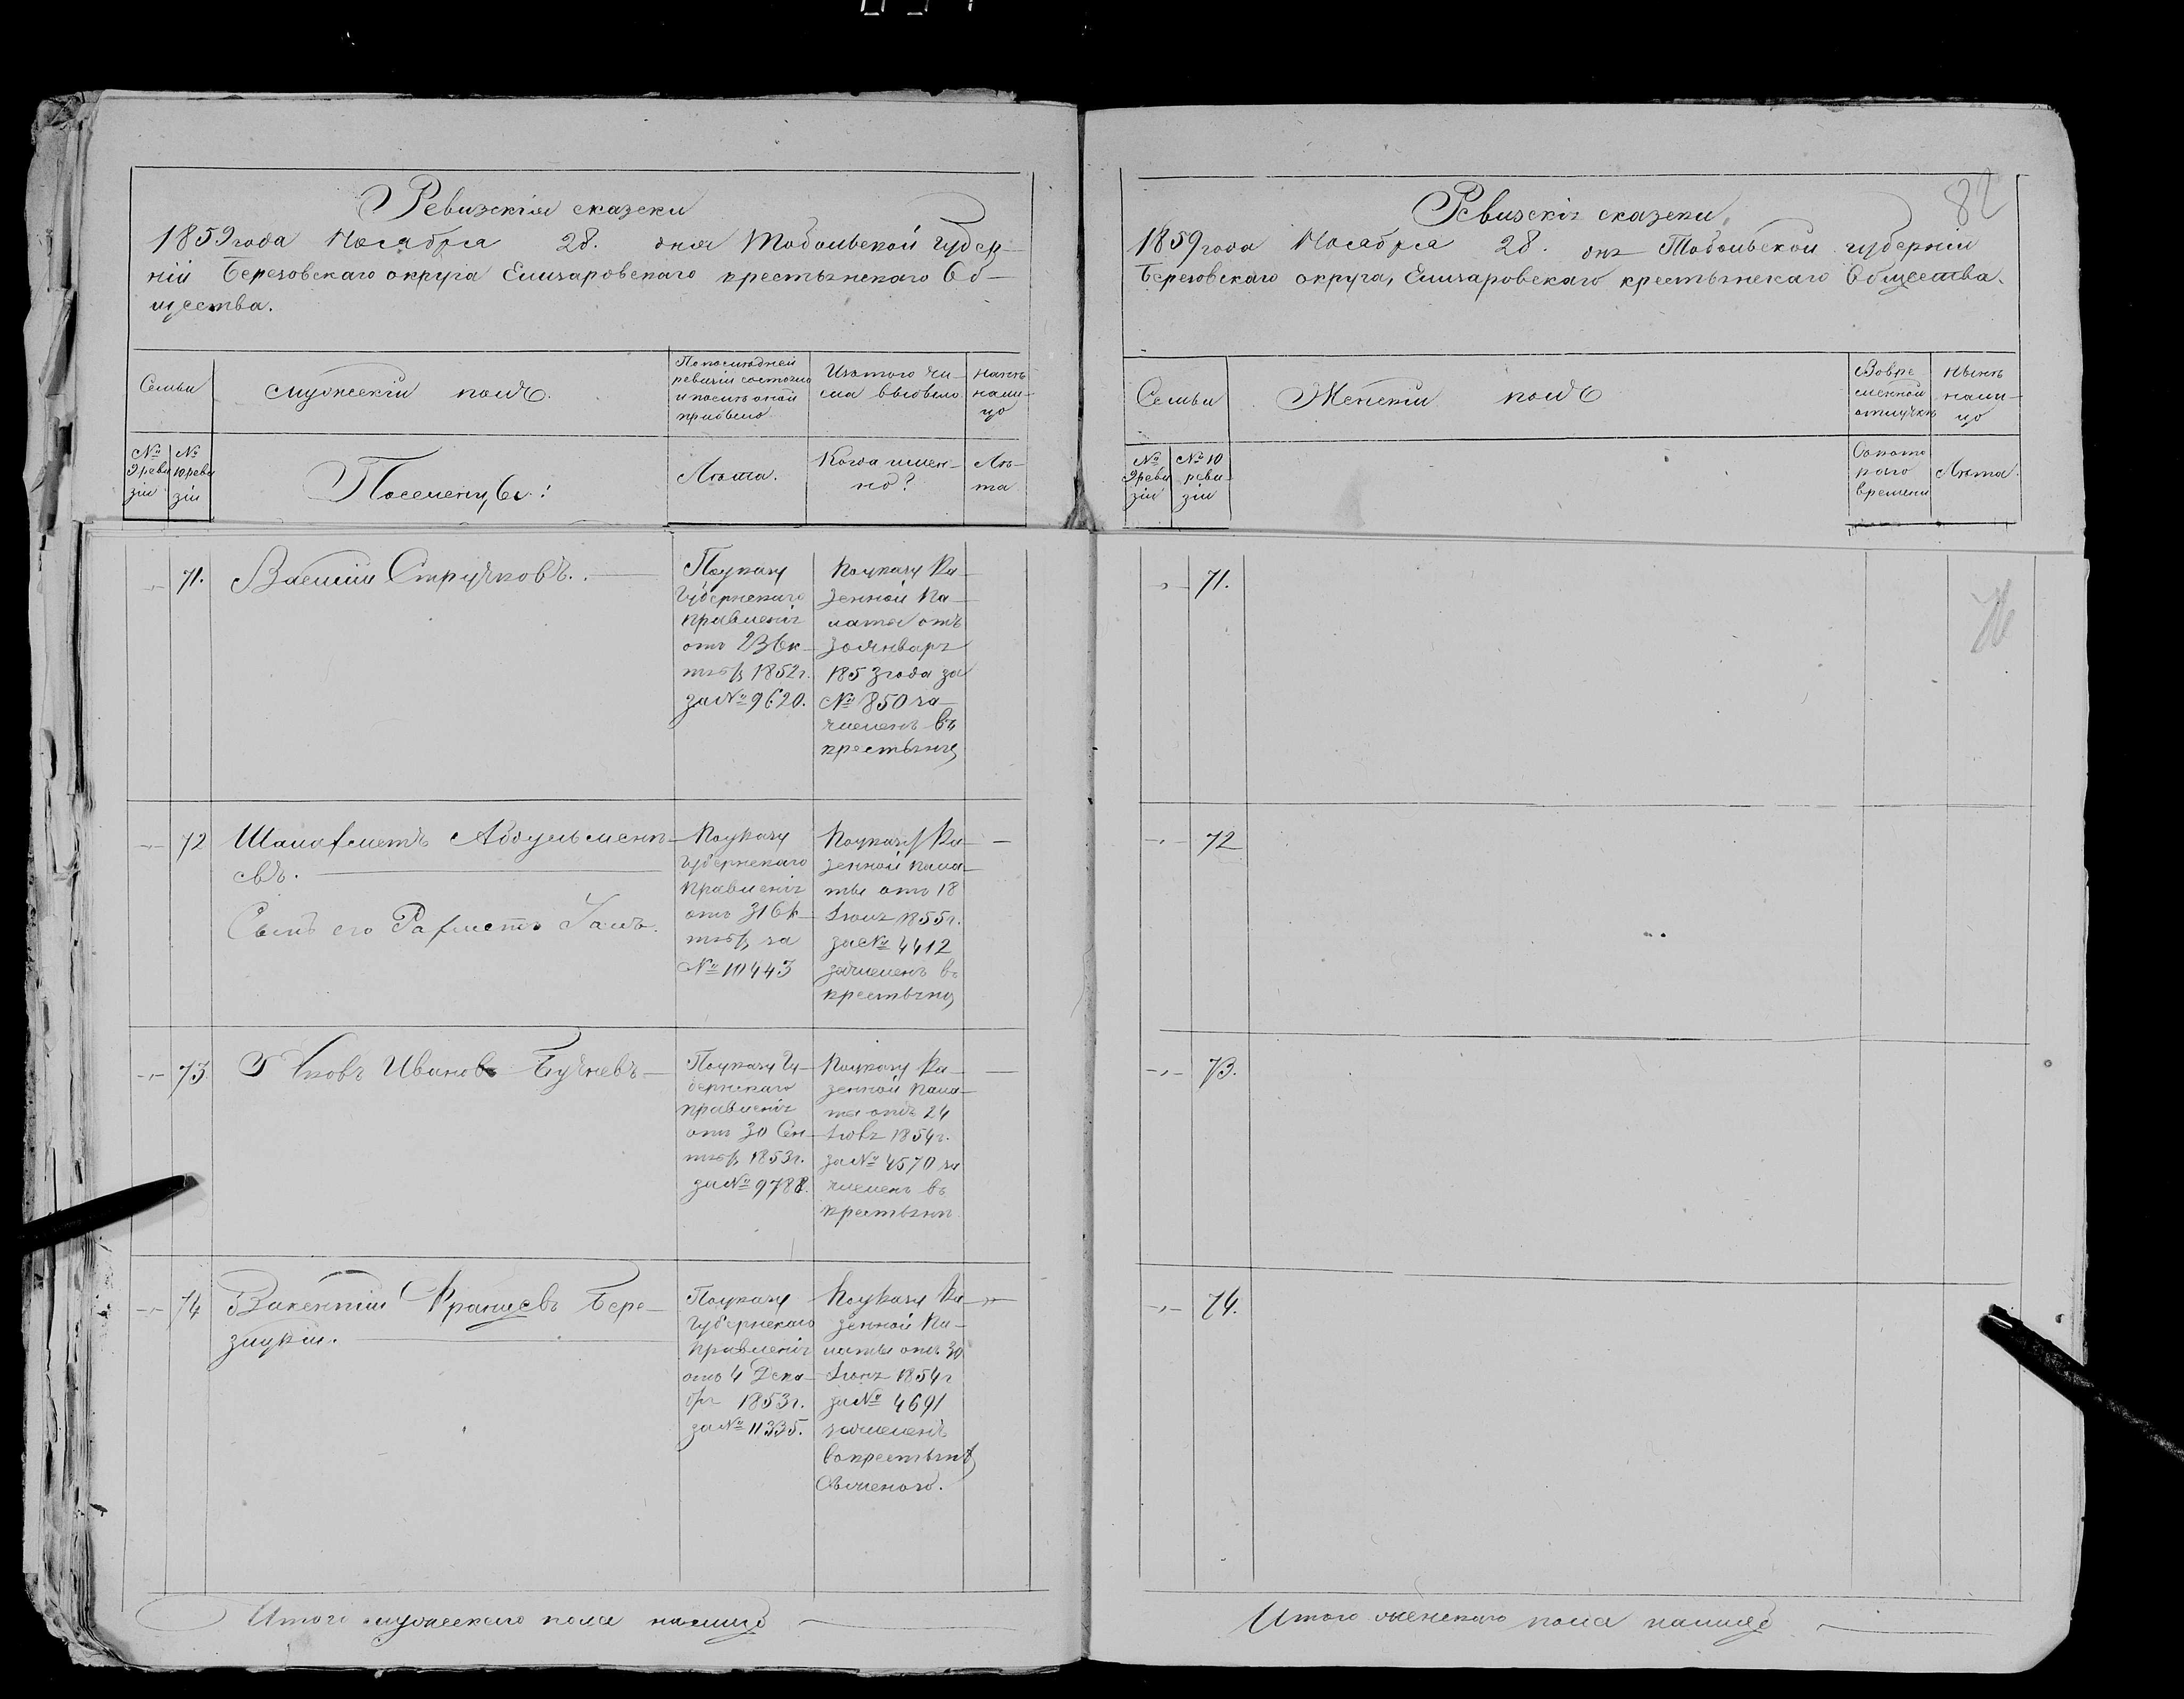 Ревизскія сказки
1859 года Ноября 28. дня Тобольской губер-
ніи Березовскаго округа Елизаровскаго крестьянскаго Об-
щества.
Семьи
Мужескій полъ.
По последней
ревизіи состояло
и после оной
прибыло
Изъ того чи-
сла выбыло
Нынѣ
нали-
цо
№
9 реви
зіи
№
10 реви
зіи
Поселенцы:
Лѣта.
Когда имен-
но?
Лѣ-
та
71.
Василій Стручковъ.
По указу
Губернскаго
правленія
отъ 23 Ок-
тяб. 1852 г.
за № 9620.
По указу Ка-
зенной Па-
латы отъ
30 Января
1853 года за
№ 850 за-
численъ въ
крестьяне
72
Шамахметъ Абдульмен-
евъ.
Сынъ его Рахметъ
По указу
Губернскаго
правленія
отъ 31 Ок-
тяб. за
№ 10443
По указу Ка-
зенной Пала-
ты отъ 18
Іюня 1855 г.
за № 4412
зачисленъ въ
крестьяне
73.
Яковъ Ивановъ
По указу Гу-
бернскаго
правленія
отъ 30 Сен-
тяб. 1853 г.
за № 9788.
По указу Ка-
зенной Пала-
ты отъ 24
Іюня 1854 г.
за № 4570 за
численъ въ
крестьяне
74
Викентій Францевъ Бере-
зицкій.
По указу
Губернскаго
правленія
отъ 4 Дека-
бря 1853 г.
за № 11335.
По указу Ка-
зенной Па-
латы отъ 30
Іюня 1854 г
за № 4691
зачисленъ
въ крестьяне
Итого мужескаго пола налицо
82
Ревизскія сказки
1859 года Ноября 28. дня Тобольской губерніи
Березовскаго округа, Елизаровскаго крестьянскаго Общества.
Семьи
Женскій полъ
Во вре
менной
отлучкѣ
Нынѣ
нали-
цо
№
9 реви
зіи
№ 10
реви-
зіи
Съ кото
раго
времени
Лѣта.
71.
72
73.
74.
Итого женскаго пола налицо